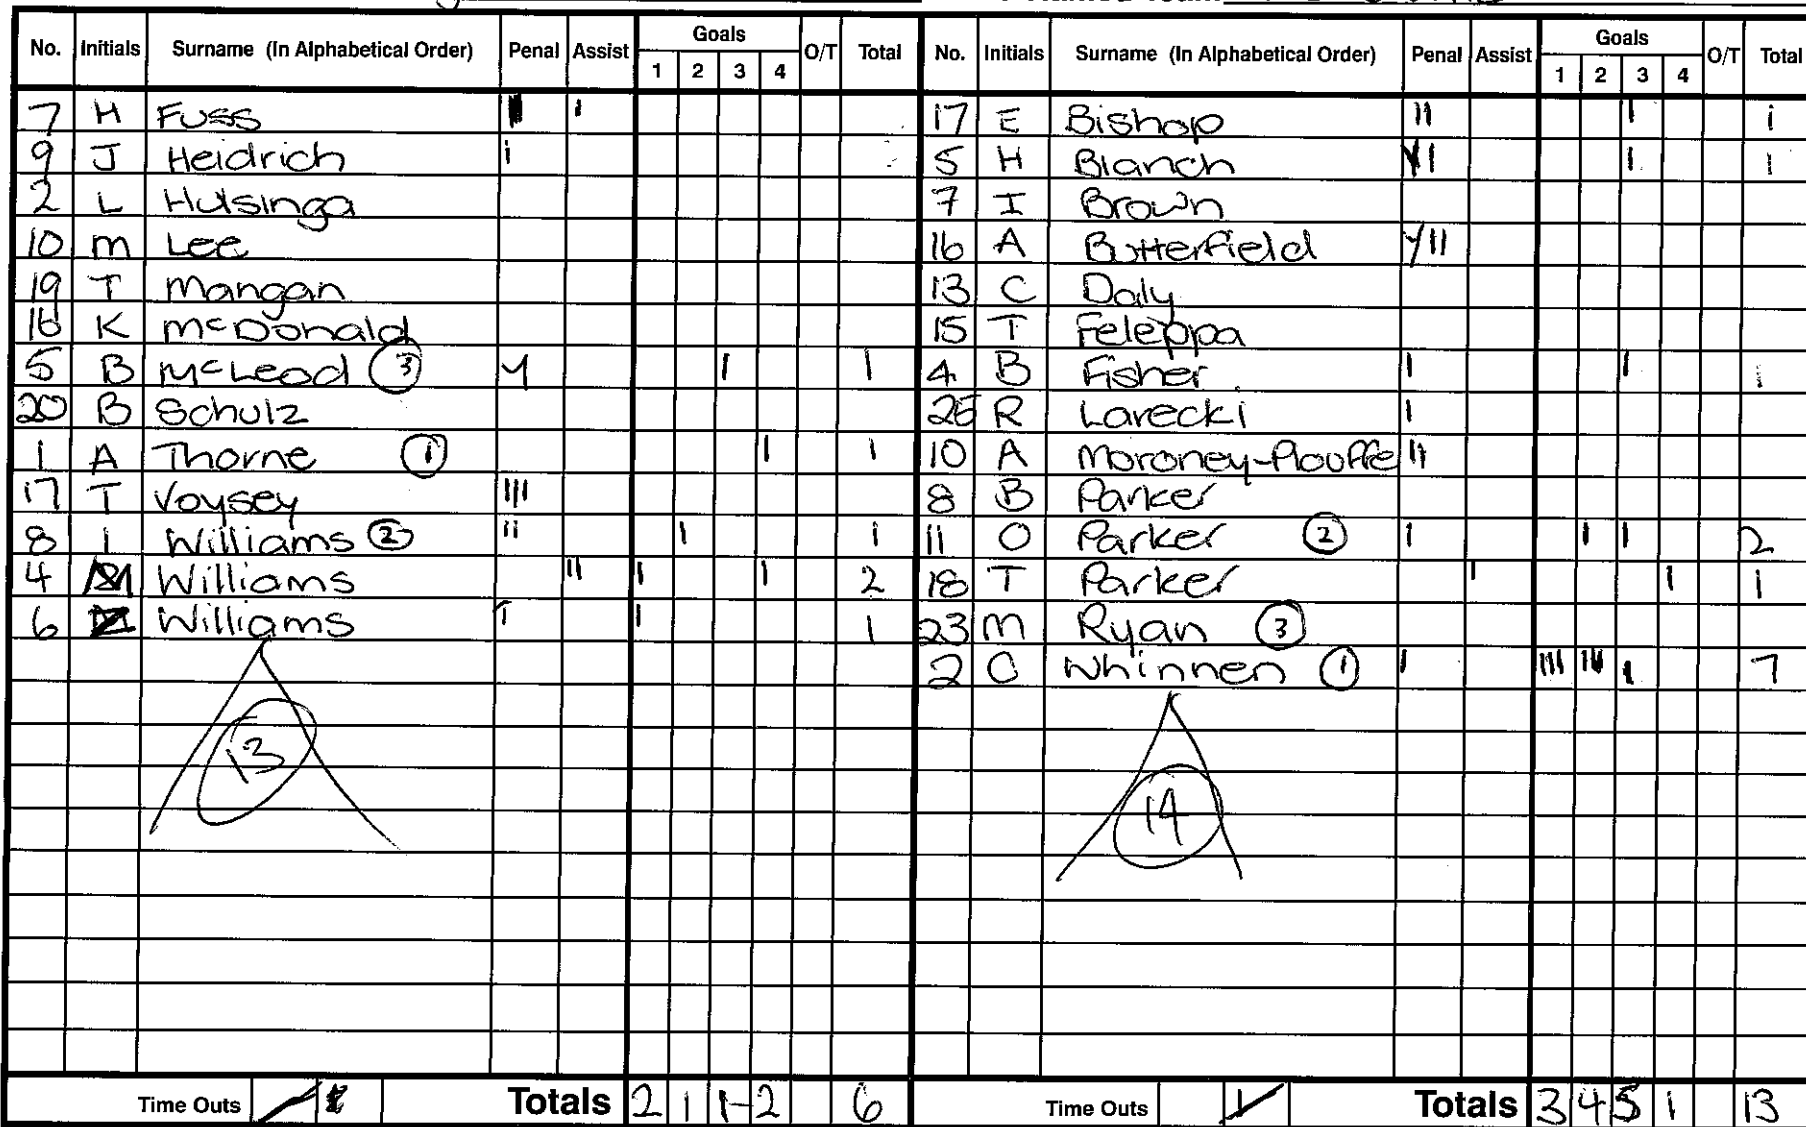 No. Initials Surname (In Alphabetical Order) Penal Assist Goals 1 2 3 4 O/T Total
7 H Fuss | |
9 J Heidrich |
2 L Hulsinga
10 M Lee
19 T Mangan
16 K McDonald
5 B McLeod ③ Y | 1
20 B Schulz
1 A Thorne ① | 1
17 T Voysey |||
8 I Williams ② || | 1
4 Williams || | | 2
6 Williams | | 1
13
Time Outs Totals 2 1 1 2 6
No. Initials Surname (In Alphabetical Order) Penal Assist Goals 1 2 3 4 O/T Total
17 E Bishop || | 1
5 H Blanch Y| | 1
7 I Brown
16 A Butterfield Y||
13 C Daly
15 T Feleppa
4 B Fisher | | 1
R Larecki |
10 A Moroney-Plouffe ||
8 B Parker
11 O Parker ② | | | 2
18 T Parker | | 1
23 M Ryan ③
2 O Whinnen ① | ||| ||| | 7
14
Time Outs Totals 3 4 5 1 13